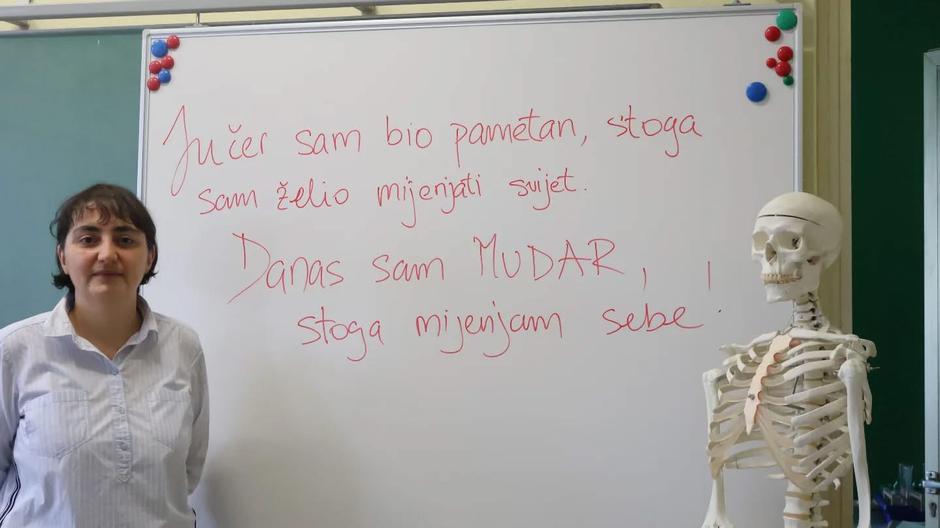 Jučer sam bio pametan, stoga
sam želio mijenjati svijet.
Danas sam MUDAR,
stoga mijenjam sebe!